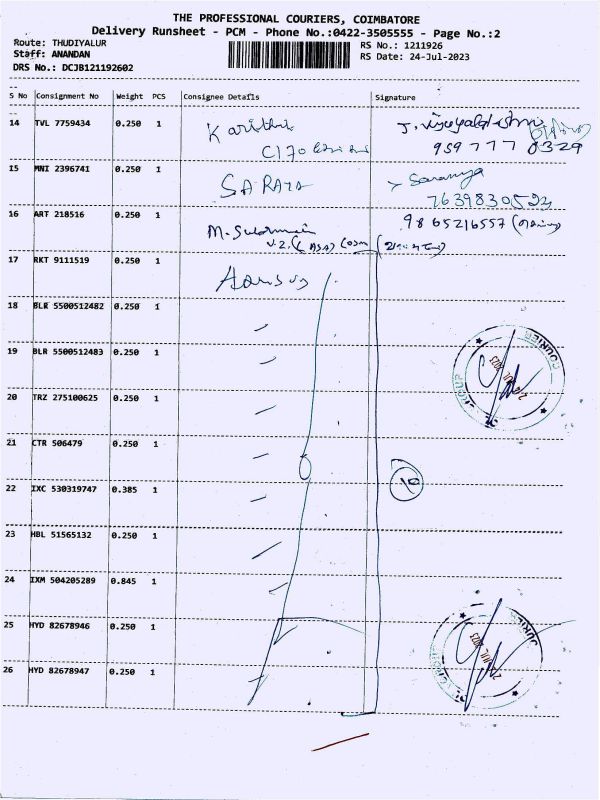 THE PROFESSIONAL COURIERS, COIMBATORE
Delivery Runsheet - PCM - Phone No.:0422-3505555 - Page No.:2
Route: THUDIYALUR
RS No.: 1211926
Staff: ANANDAN
RS Date: 24-Jul-2023
DRS No.: DCJB121192602
S No Consignment No Weight PCS Consignee Details Signature
14 TVL 7759434 0.250 1
15 MNI 2396741 0.250 1
7639830524
16 ART 218516 0.250 1 9865216557
17 RKT 9111519 0.250 1
18 BLR 5500512482 0.250 1
19 BLR 5500512483 0.250 1
20 TRZ 275100625 0.250 1
21 CTR 506479 0.250 1
22 IXC 530319747 0.385 1
10
23 HBL 51565132 0.250 1
24 IXM 504205289 0.845 1
25 HYD 82678946 0.250 1
26 HYD 82678947 0.250 1